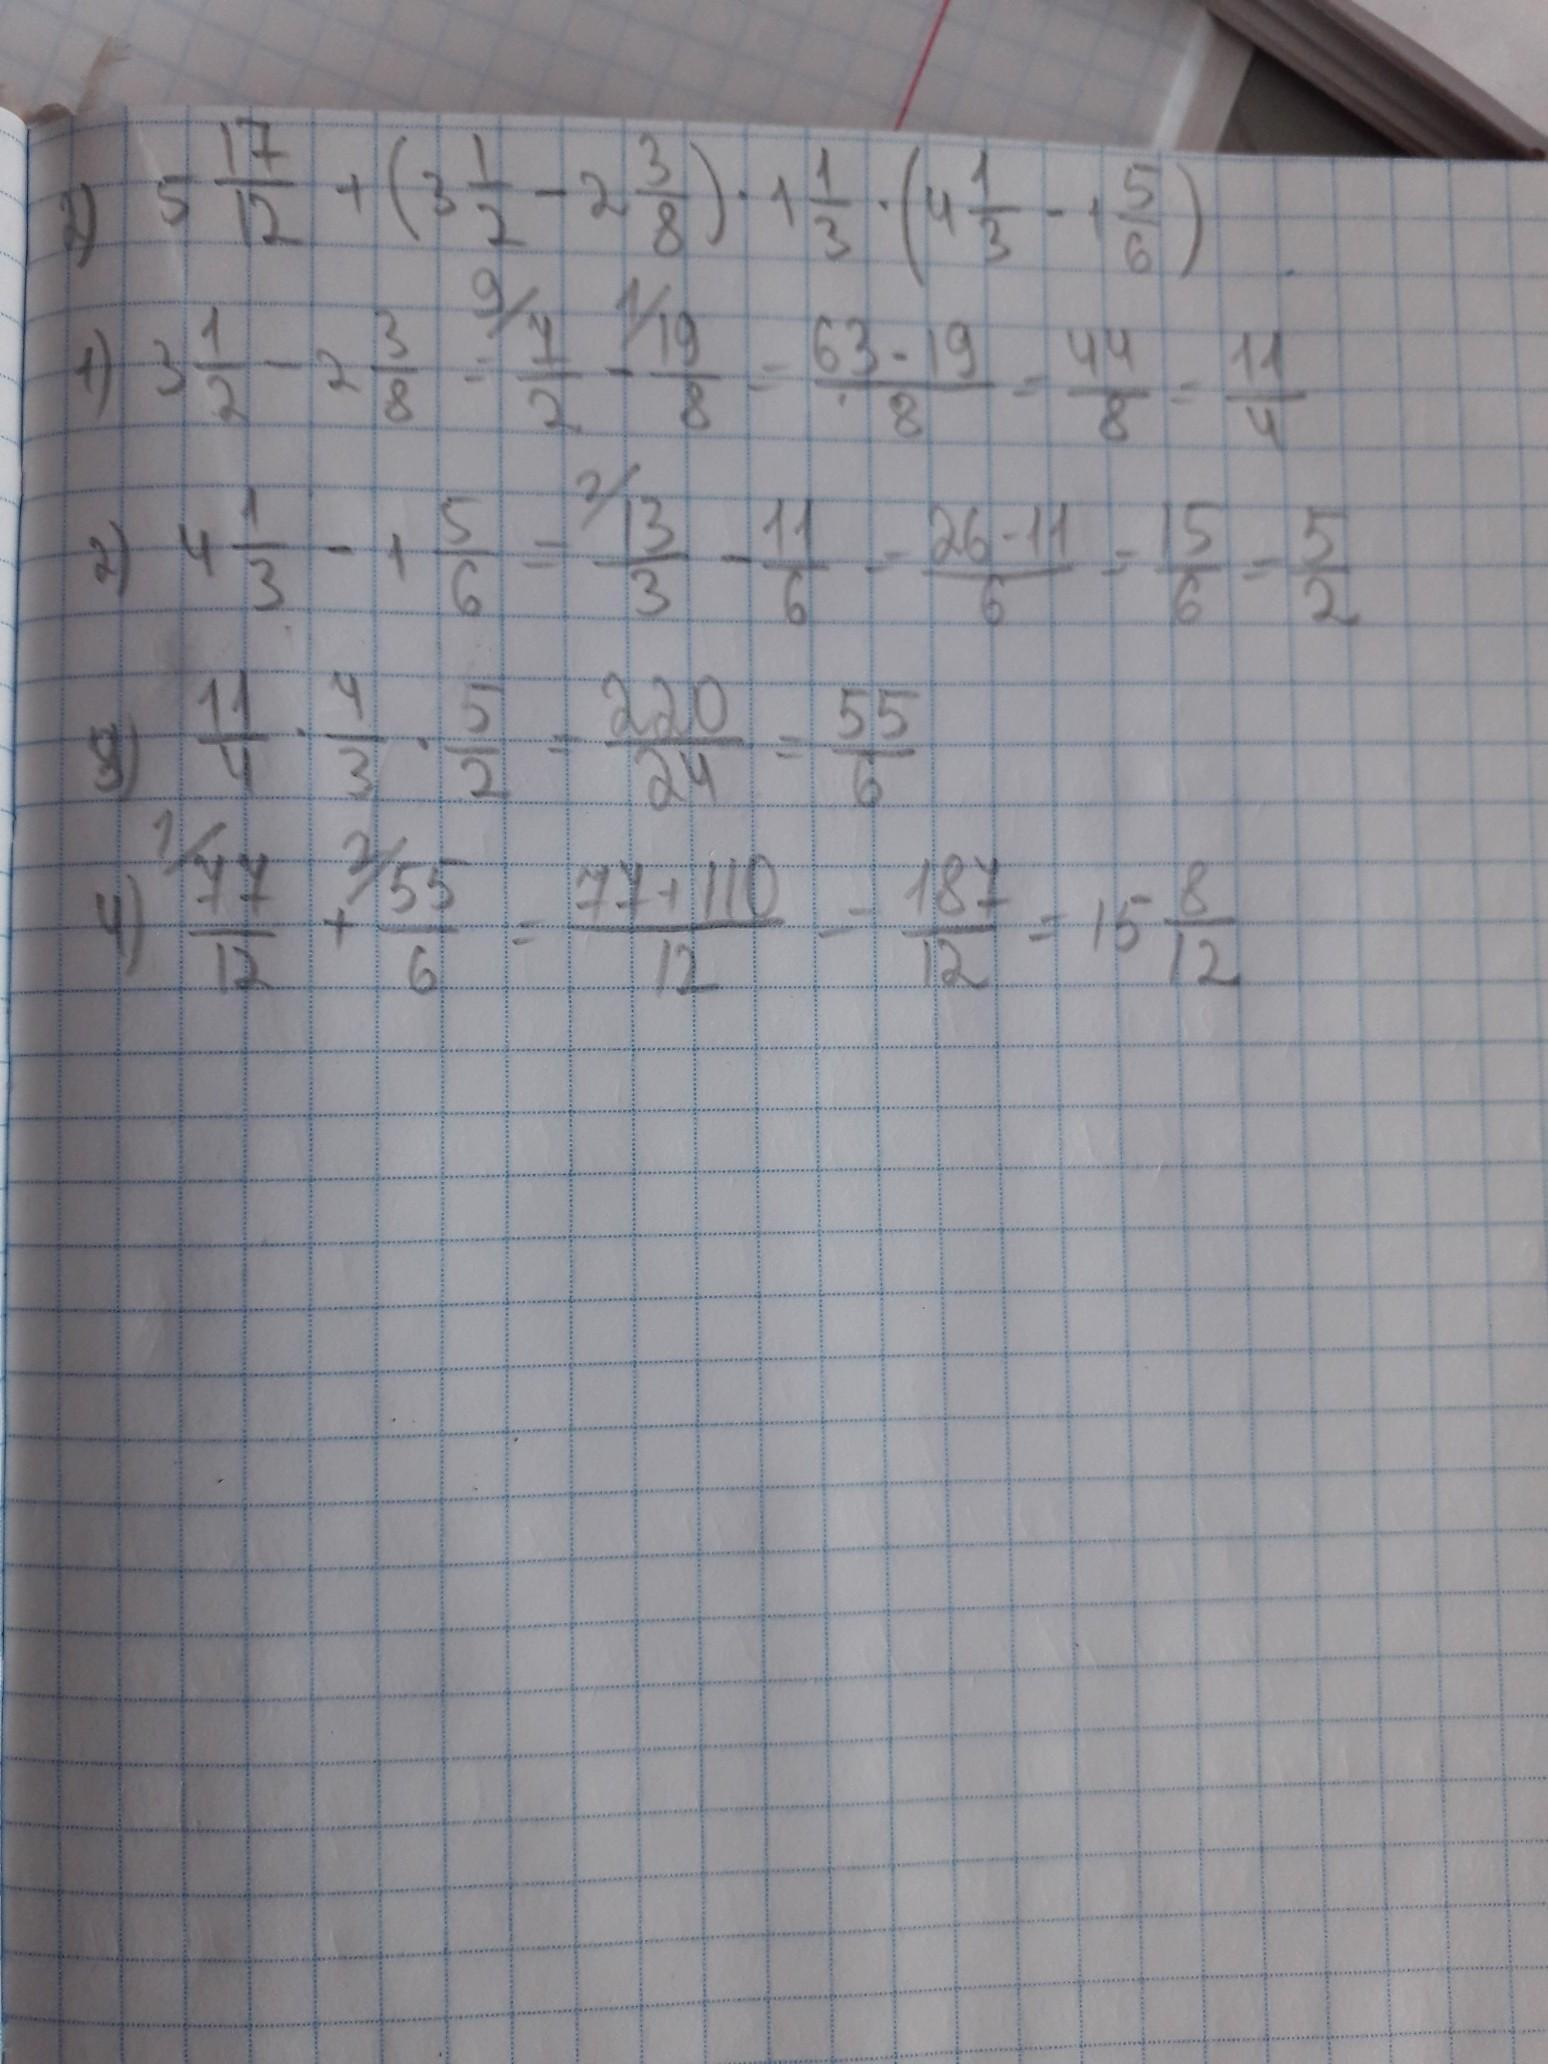 2) 5 17/12 + (3 1/2 - 2 3/8) · 1 1/3 · (4 1/3 - 1 5/6)
1) 3 1/2 - 2 3/8 = 9/ 7/2 - 1/ 19/8 = 63-19/8 = 44/8 = 11/4
2) 4 1/3 - 1 5/6 = 2/ 13/3 - 11/6 = 26-11/6 = 15/6 = 5/2
3) 11/4 · 4/3 · 5/2 = 220/24 = 55/6
4) 1/ 77/12 + 2/ 55/6 = 77+110/12 = 187/12 = 15 8/12